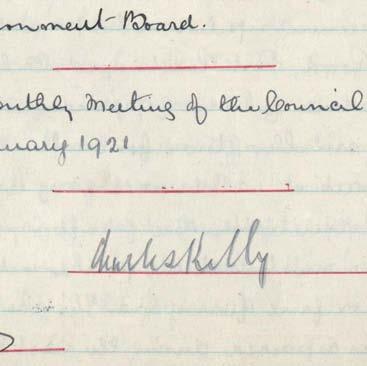 onment Board.
onthly Meeting of the Council
nuary 1921
Charles Kelly